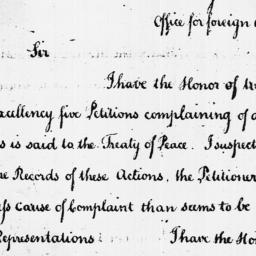 Office for foreign
Sir
I have the Honor of tr
xcellency five Petitions complaining of a
s is said to the Treaty of Peace. I suspect
e Records of these Actions, the Petitioner
ess cause of Complaint than seems to be
Representations I have the Hon